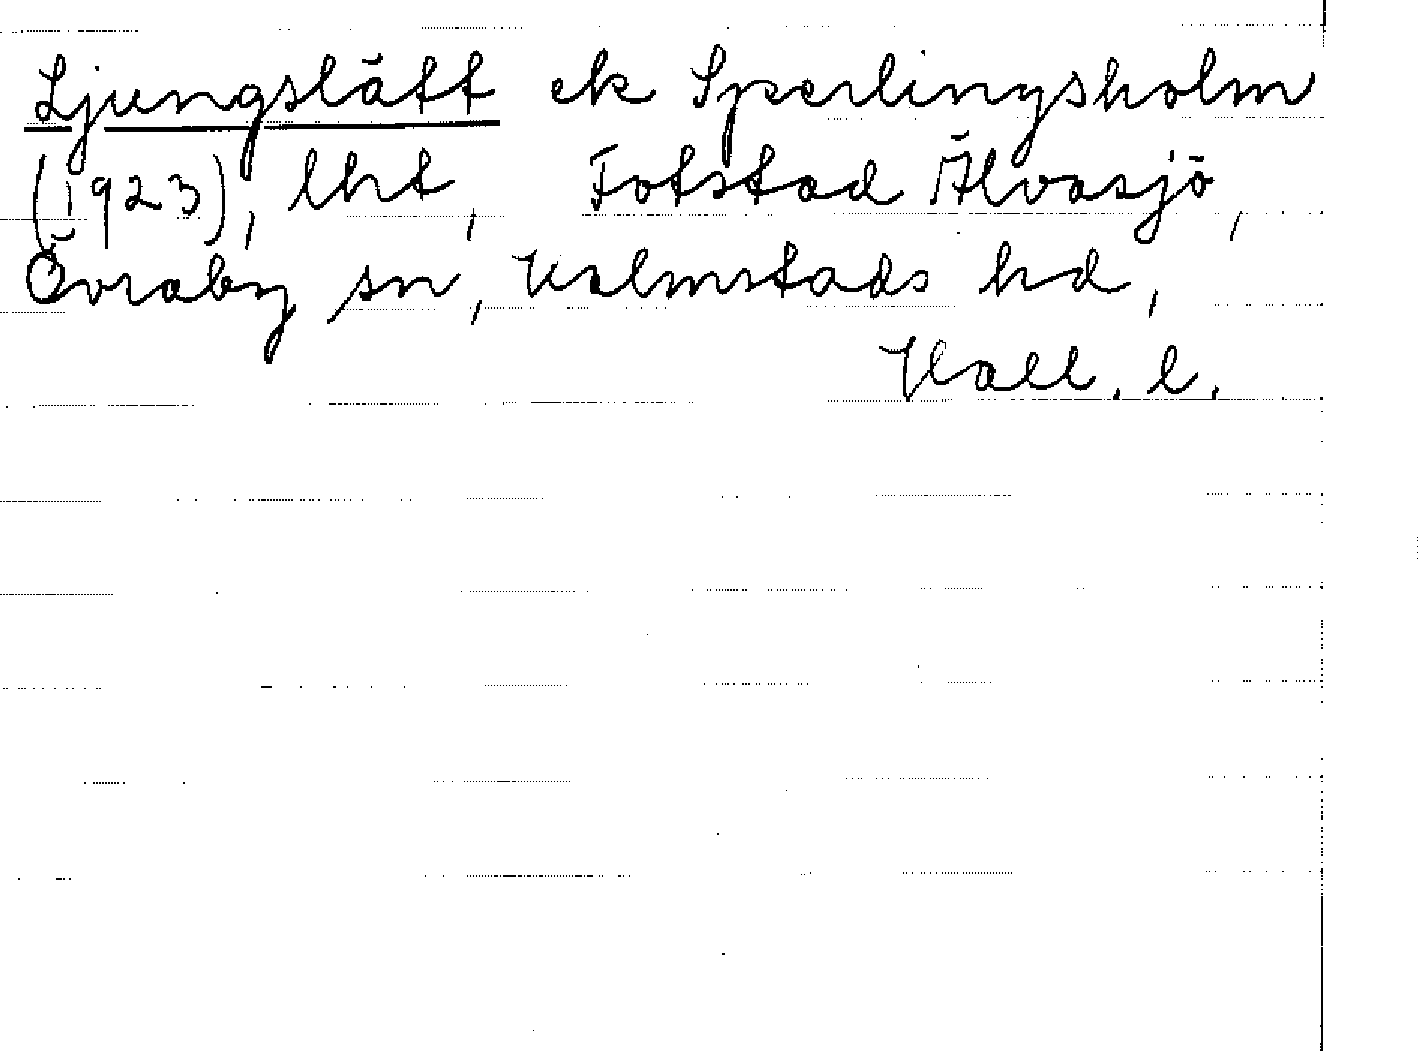 Ljungslätt ek Sperlingsholm
(1923), lht, Fotstad Älvasjö,
Övraby sn, Halmstads hd,
Hall. l.